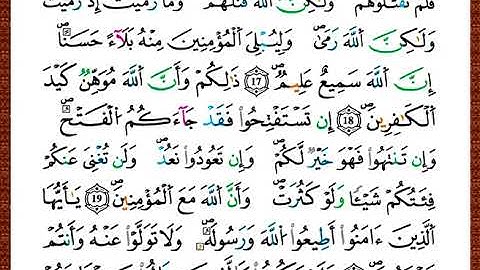 فَلَمْ تَقْتُلُوهُمْ وَلَٰكِنَّ ٱللَّهَ قَتَلَهُمْ وَمَا رَمَيْتَ إِذْ رَمَيْتَ
وَلَٰكِنَّ ٱللَّهَ رَمَىٰ ۚ وَلِيُبْلِيَ ٱلْمُؤْمِنِينَ مِنْهُ بَلَآءً حَسَنًا ۚ
إِنَّ ٱللَّهَ سَمِيعٌ عَلِيمٌ ۖ 17 ذَٰلِكُمْ وَأَنَّ ٱللَّهَ مُوَهِّنٌ كَيْدَ
ٱلْكَٰفِرِينَ ۖ 18 إِن تَسْتَفْتِحُوا۟ فَقَد جَّآءَكُمُ ٱلْفَتْحُ ۖ
وَإِن تَنتَهُوا۟ فَهْوَ خَيْرٌ لَّكُمْ ۖ وَإِن تَعُودُوا۟ نَعُدْ ۖ وَلَن تُغْنِيَ عَنكُمْ
فِئَتُكُمْ شَيْـًٔا وَلَوْ كَثُرَتْ ۖ وَأَنَّ ٱللَّهَ مَعَ ٱلْمُؤْمِنِينَ ۖ 19 يَٰٓأَيُّهَا
ٱلَّذِينَ ءَامَنُوٓا۟ أَطِيعُوا۟ ٱللَّهَ وَرَسُولَهُۥ ۖ وَلَا تَوَلَّوْا۟ عَنْهُ وَأَنتُمْ